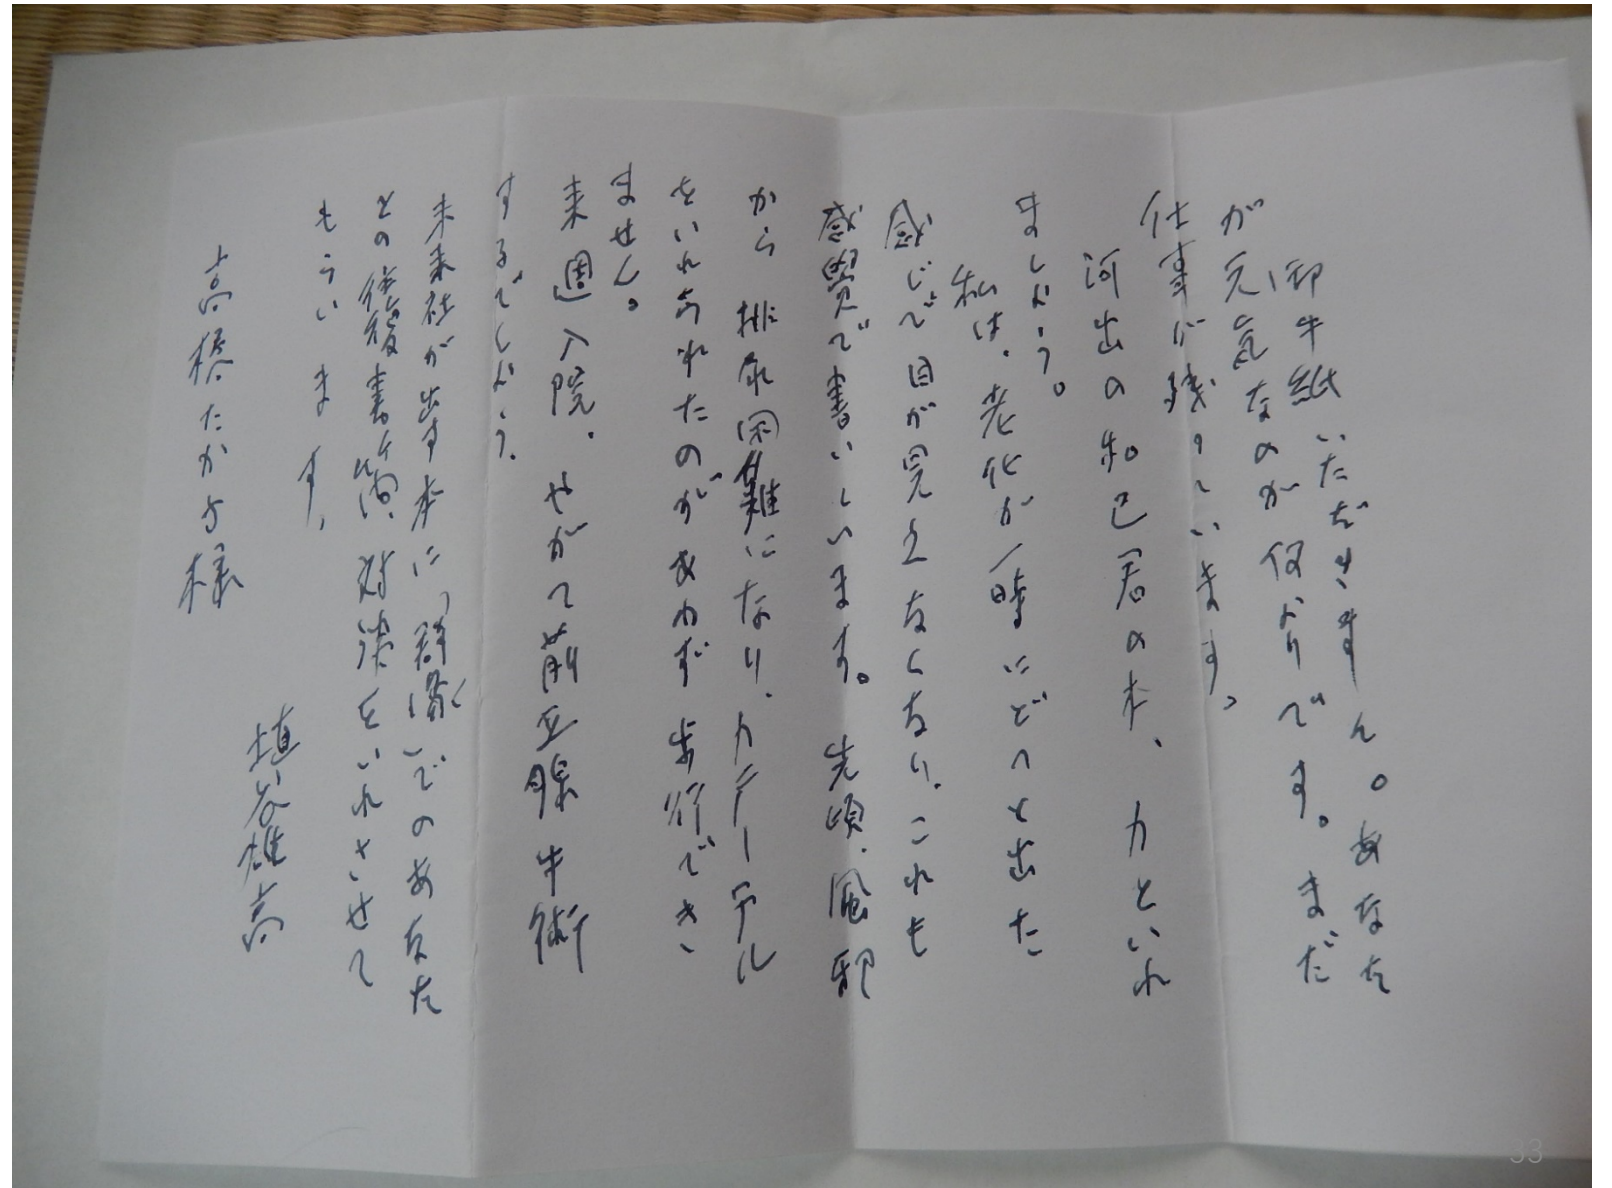 御手紙いただきました。あなた
が元気なのが何よりです。まだ
仕事が残っています。
河出の和巳君の本、力といれ
ましょう。
私は、老化が一時にどっと出た
感じで目が見えなくなり、これも
感覚で書いています。先頃、風邪
から排尿困難になり、カテーテル
をいれられたのがあわず歩行でき
ません。
来週入院、やがて前立腺手術
するでしょう。
未来社が出す本に「群像」でのあなた
との往復書簡、対談をいれさせて
もらいます。
埴谷雄高
高橋たか子様
33